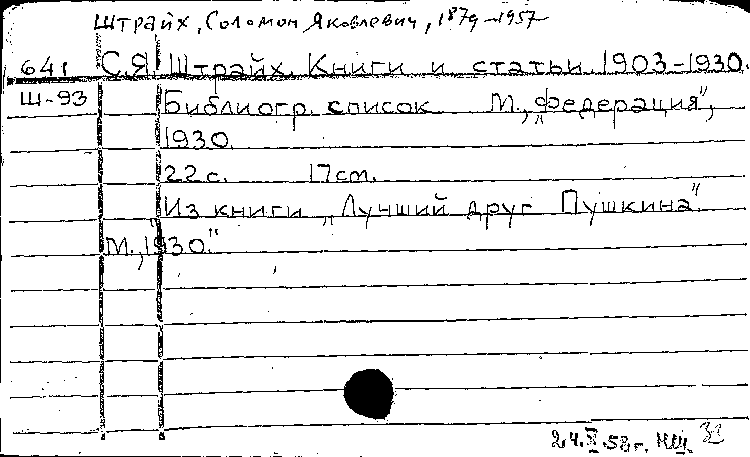 Штрайх, Соломон Яковлевич, 1879-1957
641 С.Я. Штрайх. Книги и статьи 1903-1930.
Ш-93 Библиогр. список М., „Федерация",
1930.
22 с. 17 cm.
„Из книги „Лучший друг Пушкина".
М., 1930."
24.X.58г.